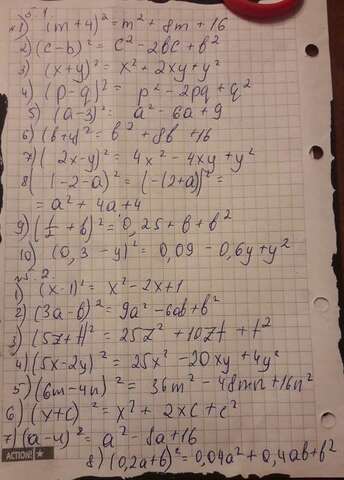 № 1.
1) (m+4)² = m² + 8m + 16
2) (c-b)² = c² - 2bc + b²
3) (x+y)² = x² + 2xy + y²
4) (p-q)² = p² - 2pq + q²
5) (a-3)² = a² - 6a + 9
6) (b+4)² = b² + 8b + 16
7) (2x-y)² = 4x² - 4xy + y²
8) (-2-a)² = (-(2+a))² =
= a² + 4a + 4
9) (½ + b)² = 0,25 + b + b²
10) (0,3 - y)² = 0,09 - 0,6y + y²
№ 2.
1) (x-1)² = x² - 2x + 1
2) (3a-b)² = 9a² - 6ab + b²
3) (5z+t)² = 25z² + 10zt + t²
4) (5x-2y)² = 25x² - 20xy + 4y²
5) (6m-4n)² = 36m² - 48mn + 16n²
6) (x+c)² = x² + 2xc + c²
7) (a-4)² = a² - 8a + 16
8) (0,2a+b)² = 0,04a² + 0,4ab + b²
ACTION!